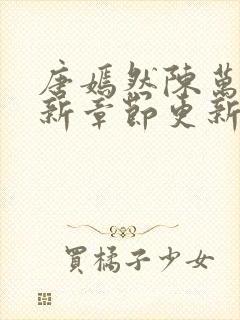 唐嫣然陳萬
新章節更新
買橘子少女